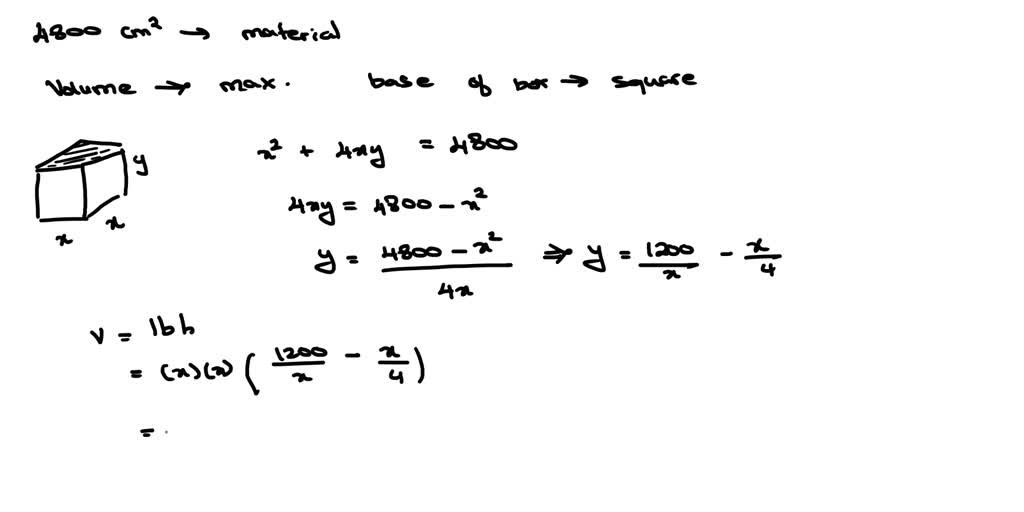 4800 cm² → material
Volume → max. base of box → square
x² + 4xy = 4800
y
x
x
4xy = 4800 − x²
y = (4800 − x²)/4x ⇒ y = 1200/x − x/4
V = lbh
= (x)(x)(1200/x − x/4)
=